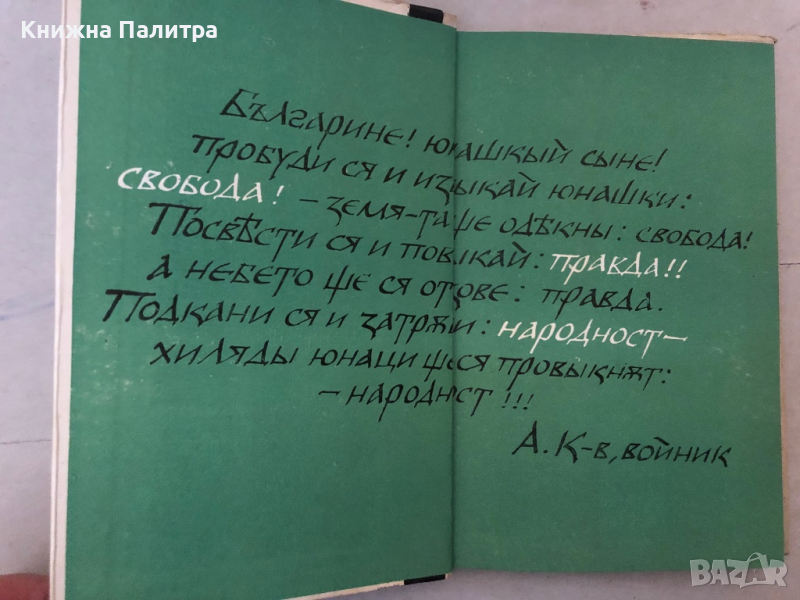 Книжна Палитра
Българине! юнашкый сыне!
пробуди ся и изыкай юнашки:
свобода! – земя-та ще одѣкны: свобода!
Посвѣсти ся и повыкай: правда!!
а небето ще ся отзове: правда.
Подкани ся и затрѫби: народност –
хиляды юнаци ще ся провыкнѫт:
– народност!!!
А. К-в, войник
BAZAR